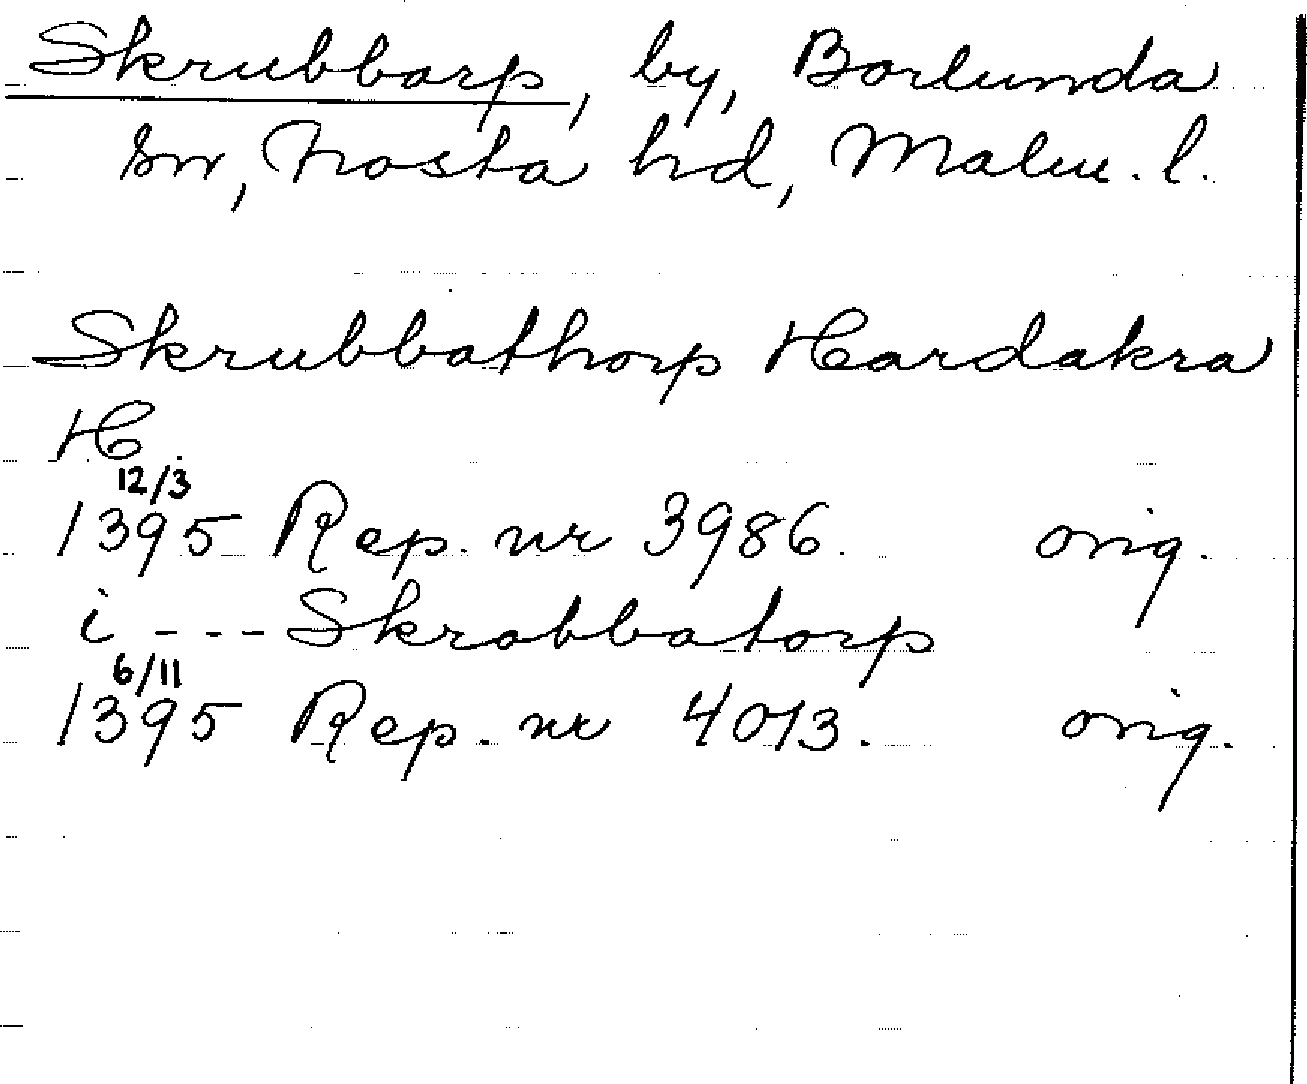 Skrubbarp, by, Borlunda
sn, Frosta hd, Malm. l.
Skrubbathorp Hardakra
H
12/3
1395 Rep. nr 3986. orig.
i --- Skrabbatorp
6/11
1395 Rep. nr 4013. orig.